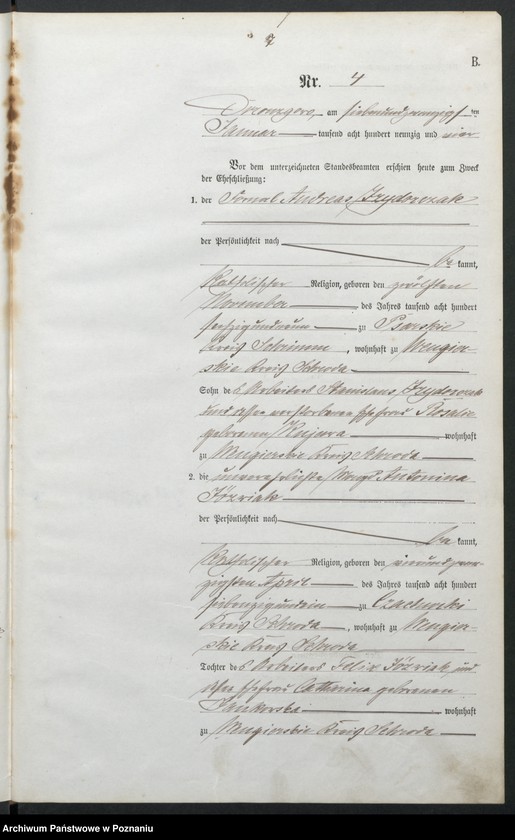 B.
Nr. 4
am siebenundzwanzigsten
Januar tausend acht hundert neunzig und vier
Vor dem unterzeichneten Standesbeamten erschien heute zum Zweck
der Eheschließung:
1. der Fornal Andreas Izydorczak
der Persönlichkeit nach
be kannt,
katholischer Religion, geboren den zwölften
November des Jahres tausend acht hundert
sechzig und neun zu Psarskie
Kreis Schrimm, wohnhaft zu Wengier-
skie Kreis Schroda
Sohn des Arbeiters Stanislaus Izydorczak
und dessen verstorbenen Ehefrau Rosalie
geborenen Kujawa wohnhaft
zu Wengierskie Kreis Schroda
2. die unverehelichte Magd Antonina
Józwiak
der Persönlichkeit nach
be kannt,
katholischer Religion, geboren den einundzwan-
zigsten April des Jahres tausend acht hundert
siebenzig und ein zu
Kreis Schroda, wohnhaft zu Wengier-
skie Kreis Schroda
Tochter des Arbeiters Felix Józwiak und
Ehefrau Catharina geborenen
Jankowska wohnhaft
zu Wengierskie Kreis Schroda
Archiwum Państwowe w Poznaniu